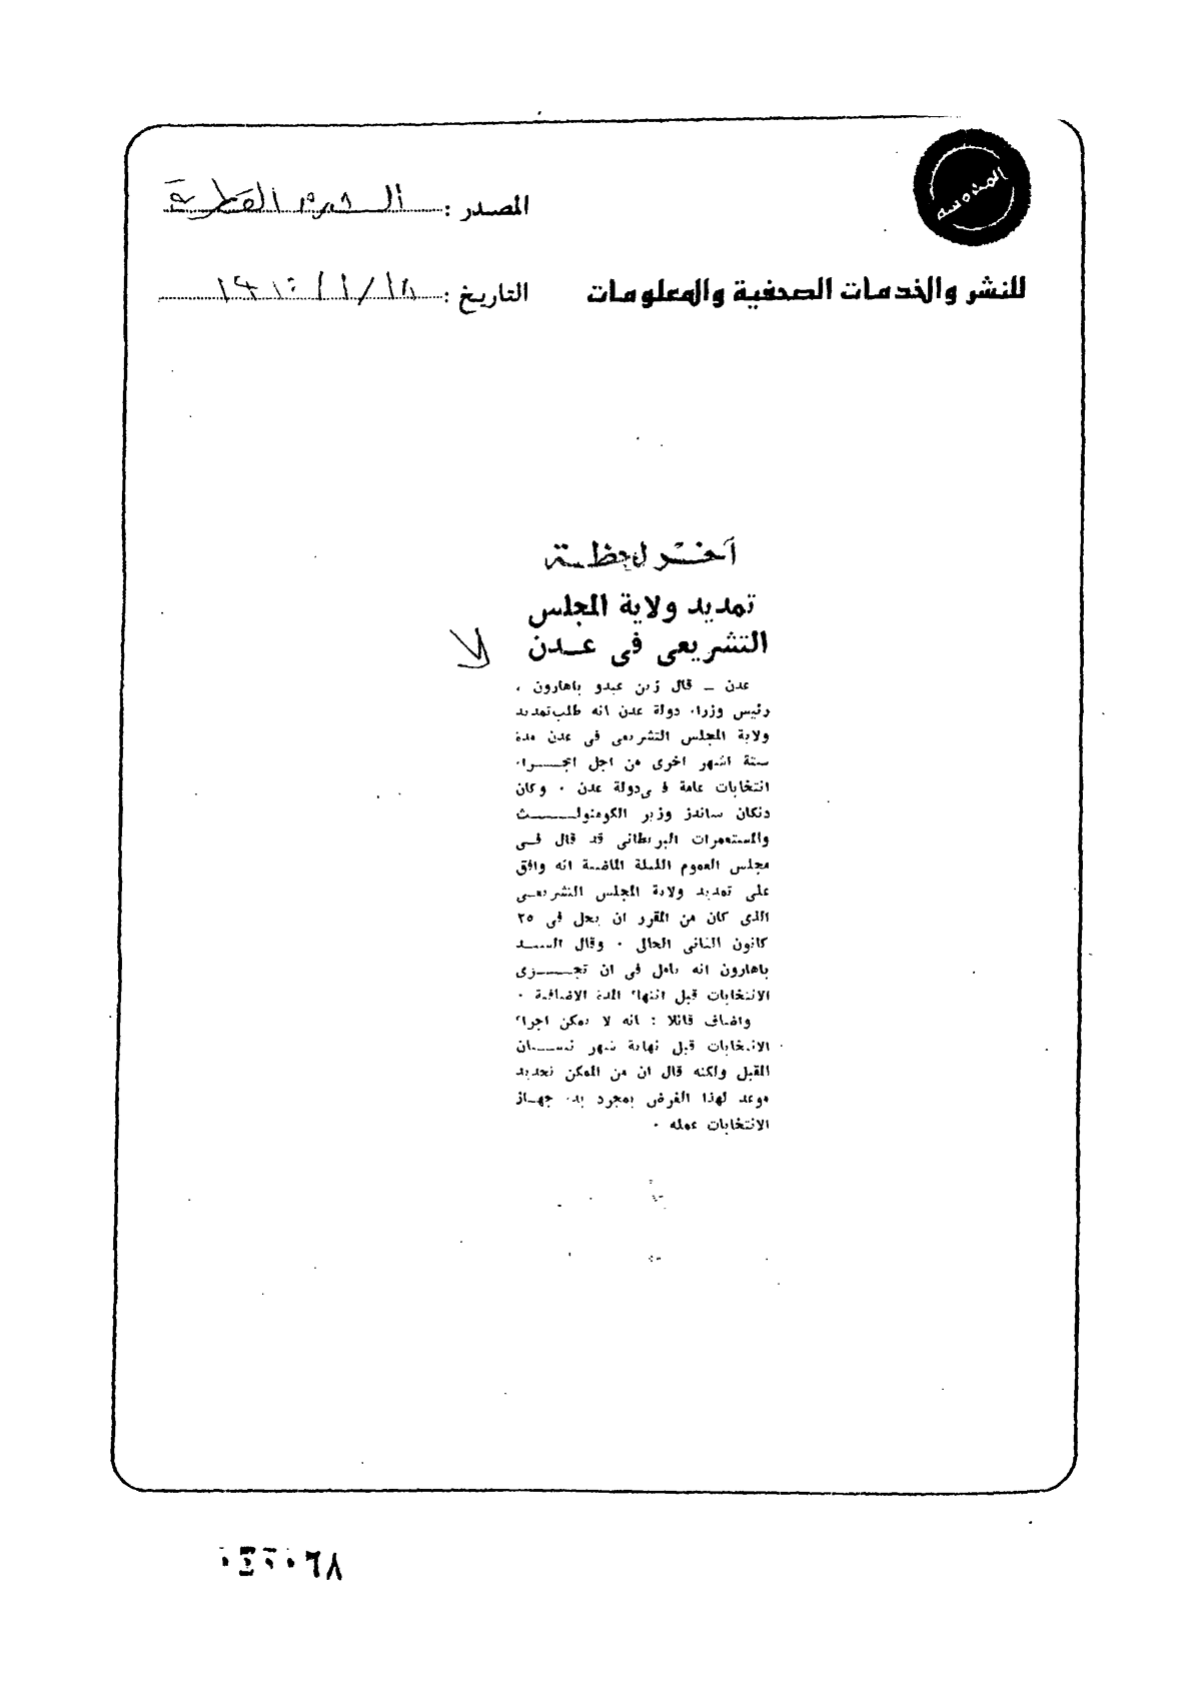 المدروسه
المصدر :
للنشر والخدمات الصحفية والمعلومات
التاريخ : ١٨/١/
آخر لحظة
تمديد ولاية المجلس
التشريعى فى عدن
عدن ـ قال زين عبدو باهارون ،
رئيس وزراء دولة عدن انه طلب تمديد
ولاية المجلس التشريعى فى عدن مدة
ستة اشهر اخرى من اجل اجراء
انتخابات عامة فى دولة عدن ٠ وكان
دنكان ساندز وزير الكومنولث
والمستعمرات البريطانى قد قال فى
مجلس العموم الليلة الماضية انه وافق
على تمديد ولاية المجلس التشريعى
الذى كان من المقرر ان يحل فى ٢٥
كانون الثانى الحالى ٠ وقال السيد
باهارون انه يامل فى ان تجرى
الانتخابات قبل انتهاء المدة الاضافية ٠
واضاف قائلا : انه لا يمكن اجراء
الانتخابات قبل نهاية شهر نيسان
المقبل ولكنه قال ان من الممكن تحديد
موعد لهذا الغرض بمجرد بدء جهاز
الانتخابات عمله ٠